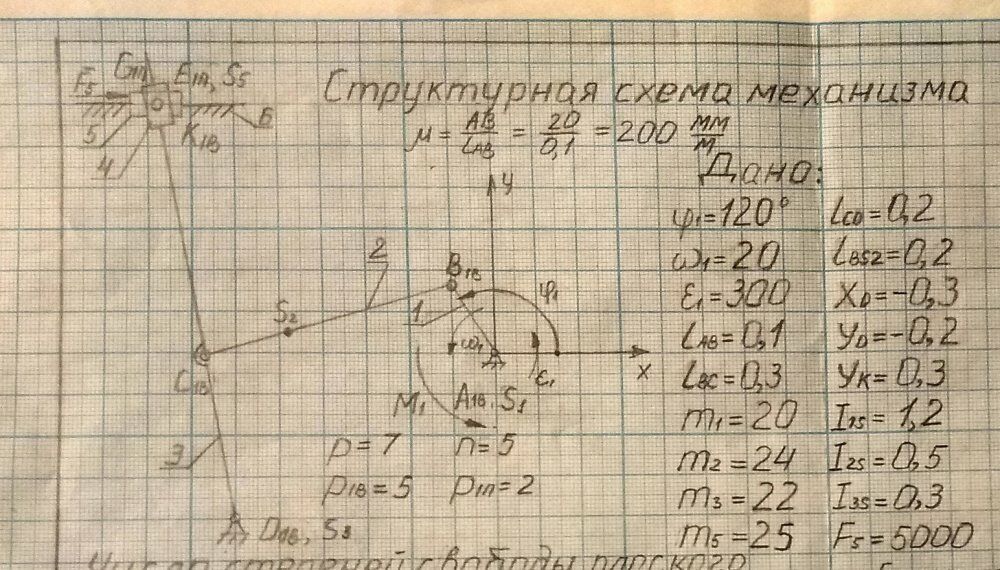 Структурная схема механизма
μ = AB/LAB = 20/0,1 = 200 мм/м
Дано:
φ1=120° LCD=0,2
ω1=20 LBS2=0,2
ε1=300 XD=-0,3
LAB=0,1 YD=-0,2
LBC=0,3 YK=0,3
m1=20 I1S=1,2
m2=24 I2S=0,5
m3=22 I3S=0,3
m5=25 F5=5000
F5 E1П, S5
5 K1В 6
4
y
2
B1В
φ1
S2 1
ω1
C1В ε1 x
M1 A1В, S1
3
p=7 n=5
p1В=5 p1П=2
D1В, S3
Число степеней свободы плоского